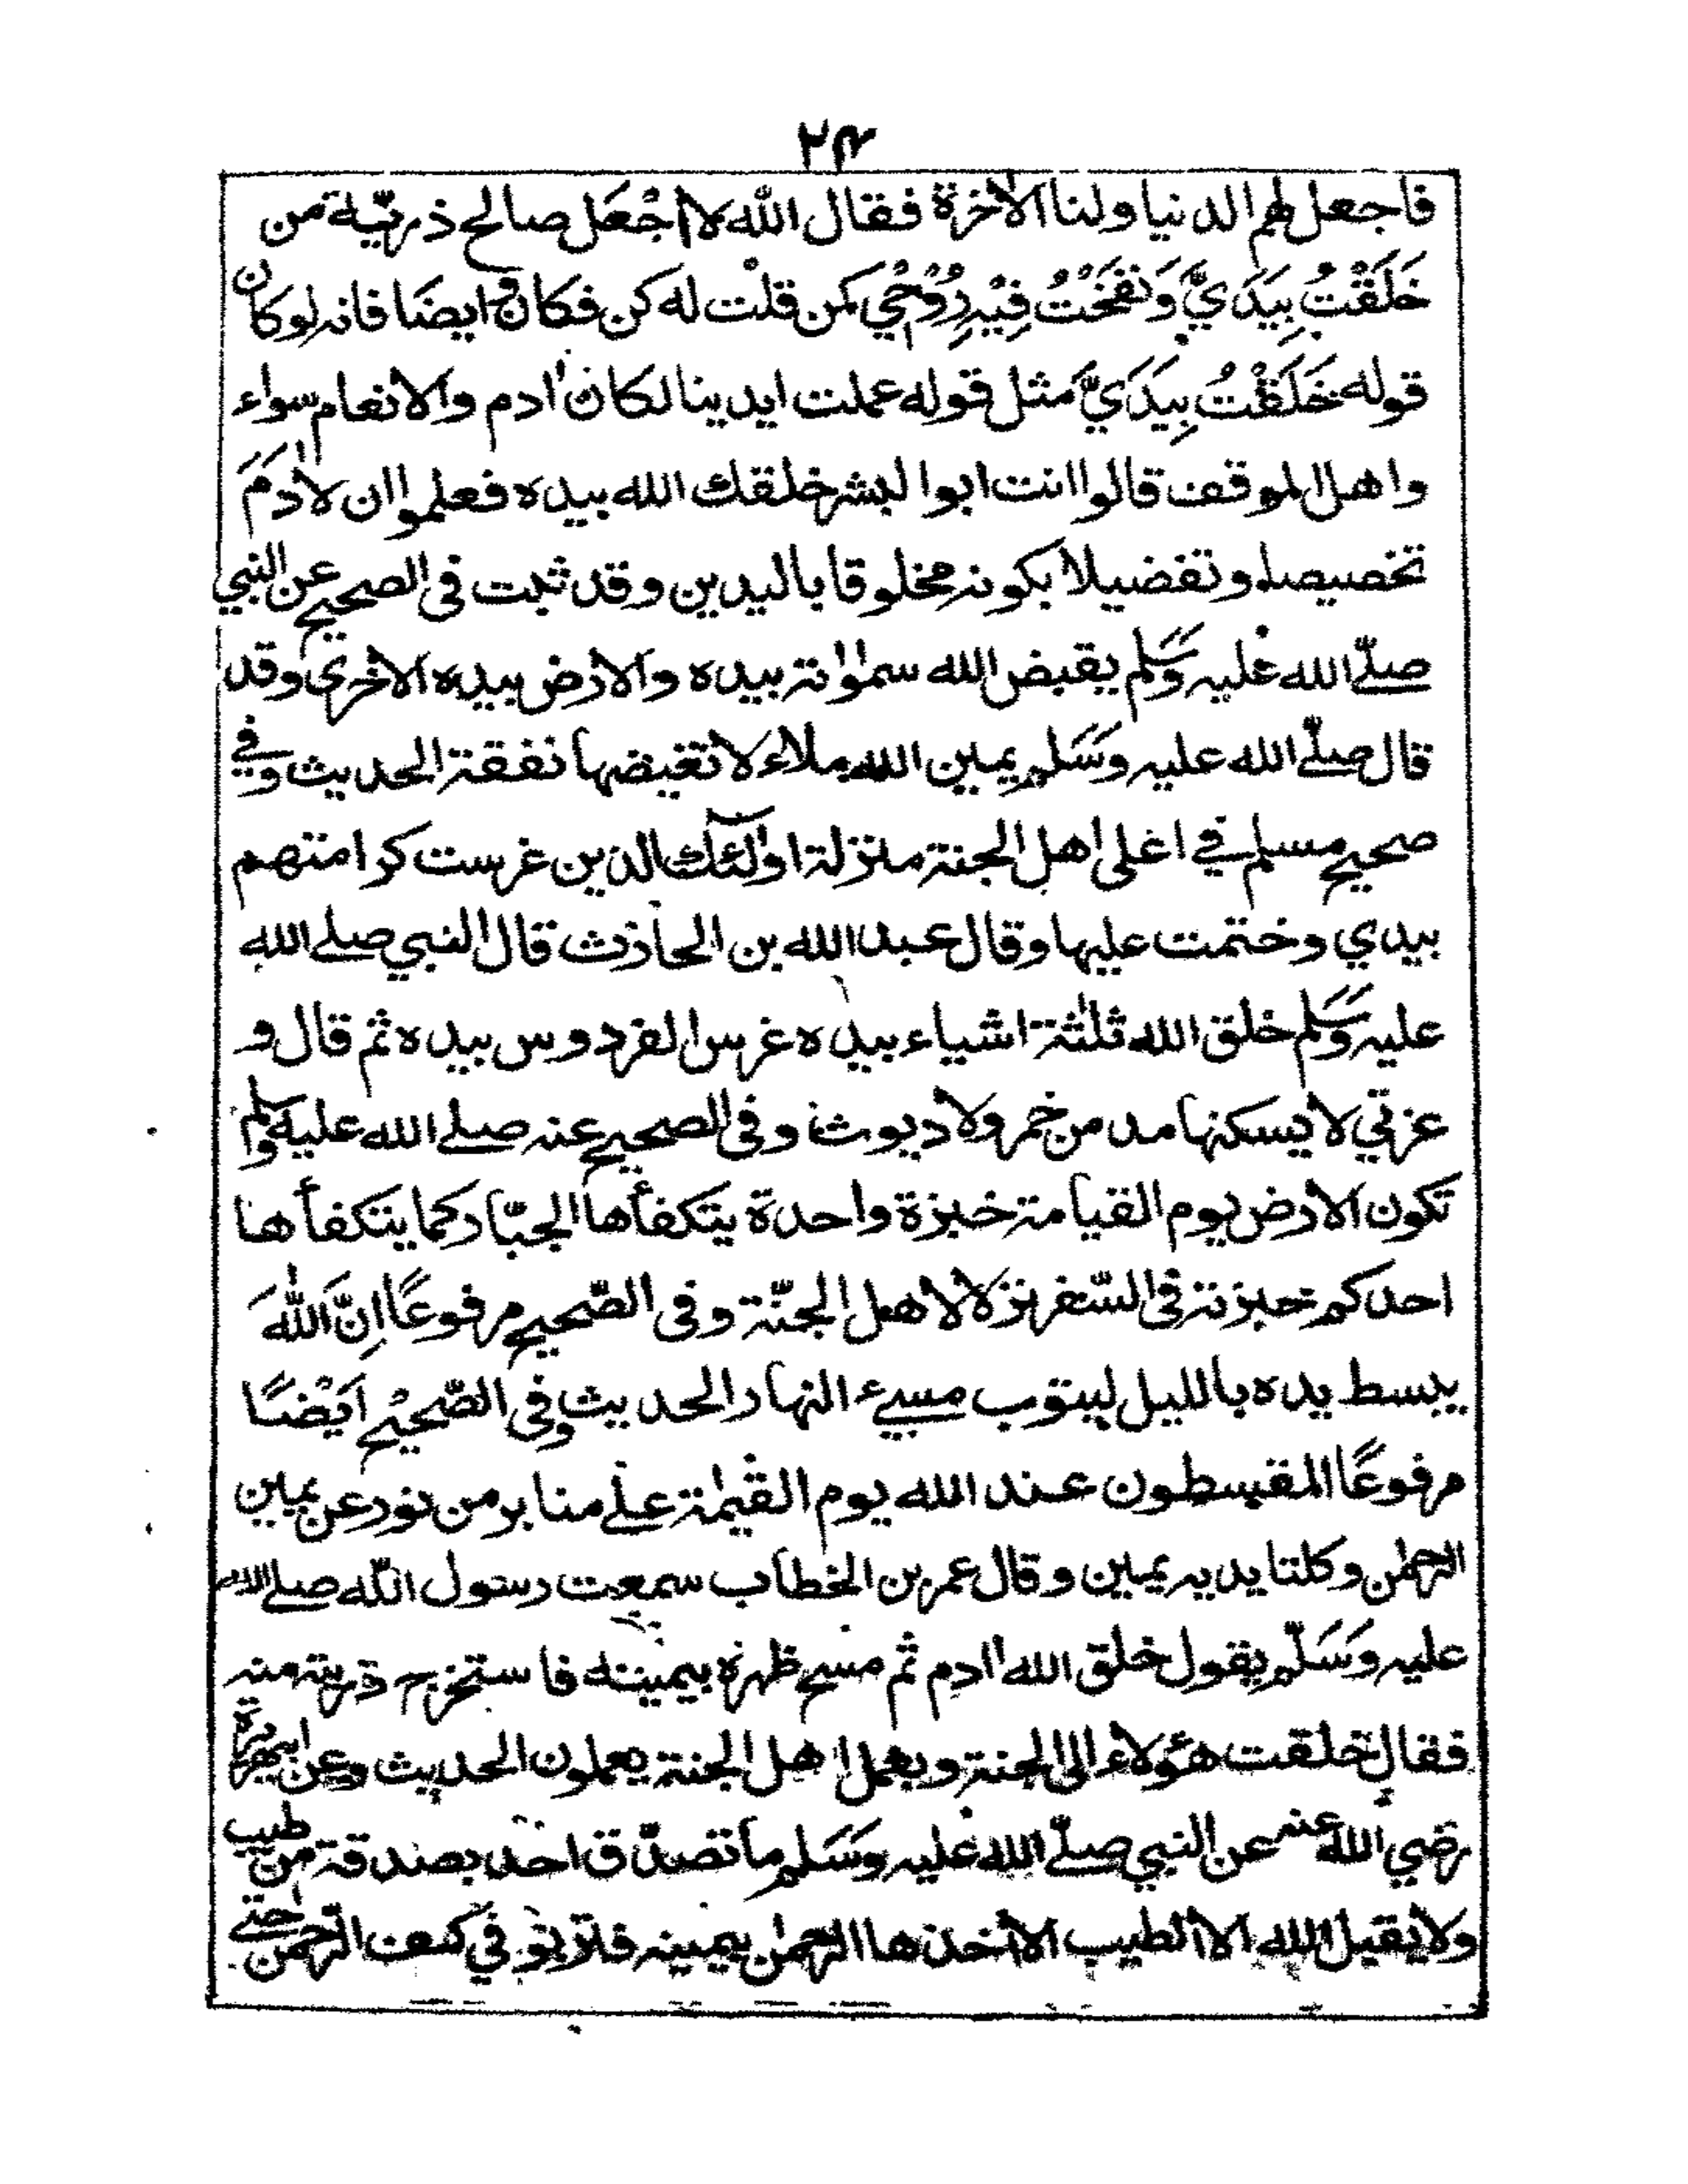 ۲۴
فاجعل لهم الدنيا ولنا الآخرة فقال الله لا اجْعَل صالح ذريّة من
خَلَقْتُ بِيَدَيَّ وَنَفَخْتُ فِيْهِ رُوْحِي كمن قلت له كن فكان وايضًا فانه لو كان
قوله خَلَقْتُ بِيَدَيَّ مثل قوله عملت ايدينا لكان اٰدم والانعام سواء
واهل الموقف قالوا انت ابوا البشر خلقك الله بيده فعلموا ان لاٰدَمَ
تخصيصا وتفضيلا بكونه مخلوقا باليدين وقد ثبت فى الصحيح عن النبي
صلّے الله عليه وَسَّلم يقبض الله سمٰوٰته بيده والارض بيده الاخرى وقد
قال صلّے الله عليه وَسَلم يمين الله ملاء لا تغيضها نفقة الحديث وفي
صحيح مسلم في اعلى اهل الجنة منزلة اولٰئك الذين غرست كرامتهم
بيدي وختمت عليها وقال عبد الله بن الحارث قال النبي صلے الله
عليه وَسَّلم خلق الله ثلٰثة اشياء بيده غرس الفردوس بيده ثم قال و
عزتي لا يسكنها مدمن خمر ولا ديوث وفى الصحيح عنه صلے الله عليه وسلم
تكون الارض يوم القيامة خبزة واحدة يتكفأها الجبّار كما يتكفأها
احدكم خبزته فى السّفر نزلا لاهل الجنّة وفى الصّحيح مرفوعًا اِنَّ اللّٰهَ
يبسط يده بالليل ليتوب مسيء النهار الحديث وفى الصّحيْح اَيْضًا
مرفوعًا المقسطون عند الله يوم القيٰمة علے منابر من نور عن يمين
الرحمٰن وكلتا يديه يمين وقال عمر بن الخطاب سمعت رسول الله صلے الله
عليه وَسَلّم يقول خلق الله اٰدم ثم مسح ظهره بيمينه فاستخرج ذريته منه
فقال خلقت هؤلاء الى الجنة وبعمل اهل الجنة يعملون الحديث وعن ابي هريرة
رضي الله عنه عن النبي صلّے الله عليه وَسَلم ما تصدّق احد بصدقة من طيب
ولا يقبل الله الا الطيب الا اخذها الرحمٰن بيمينه فتربو في كف الرّحمن حتے